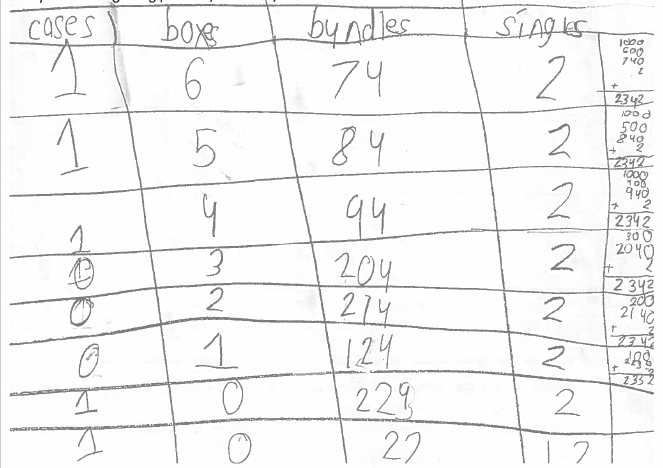 cases boxes bundles singles
1 6 74 2 1000
600
740
2
+
2342
1 5 84 2 1000
500
840
+ 2
2342
1 4 94 2 1000
400
940
+ 2
2342
0 3 204 2 300
2040
+ 2
2342
0 2 214 2 200
2140
+ 2
2342
0 1 124 2 100
+
2352
1 0 229 2
1 0 22 12